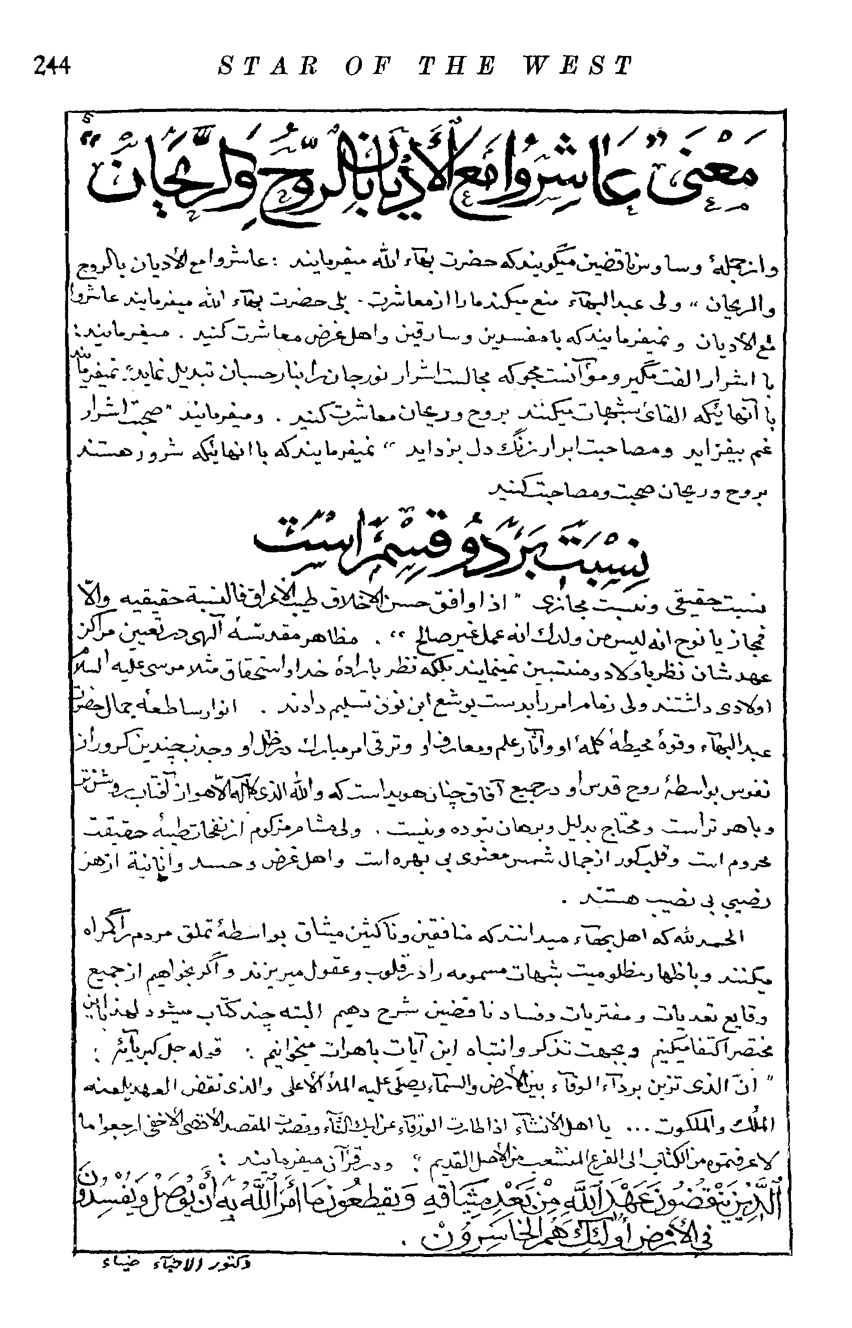 244 STAR OF THE WEST
مَعْنى "عَاشِرُوا مَعَ الأَدْيَانِ بِالرَّوْحِ وَالرَّيْحَانِ"
و از جملهٔ وساوس ناقضین میگویند که حضرت بهاء الله میفرمایند : عاشروا مع الأدیان بالروح
والریحان " ولی عبدالبهآء منع میکند ما را از معاشرت . بلی حضرت بهآء الله میفرمایند عاشروا
مع الأدیان و نمیفرمایند که با مفسدین و سارقین و اهل غرض معاشرت کنید . میفرمایند :
با اشرار الفت مگیر و مؤانست مجو که مجالست اشرار نور جان را بنار حسبان تبدیل نماید . نمیفرمایند
با آنهائیکه القای شبهات میکنند بروح و ریحان معاشرت کنید . و میفرمایند " صحبت اشرار
غم بیفزاید و مصاحبت ابرار زنگ دل بزداید " نمیفرمایند که با انهائیکه شرور هستند
بروح و ریحان صحبت و مصاحبت کنید
نِسْبَت بَر دُو قِسْم اَست
نسبت حقیقی و نسبت مجازی " اذا وافق حسن الاخلاق طیب الاعراق فالنسبة حقیقیه والّا
فمجاز یا نوح انه لیس من ولدك انه عمل غیر صالح " . مظاهر مقدسهٔ آلهی در تعیین مراکز
عهدشان نظر باولاد و منتسبین نمینمایند بلکه نظر بارادهٔ خدا و استحقاق مثلا موسی علیه السلام
اولادی داشتند ولی زمام امر را بدست یوشع ابن نون تسلیم دادند . انوار ساطعهٔ جمال حضرت
عبدالبهآء وقوهٔ محیطهٔ کلمهٔ او و آثار علم و معارف او و ترقی امر مبارك در ظل او و جذب چندین کرور از
نفوس بواسطهٔ روح قدس او در جمیع آفاق چنان هویداست که والله الذی لا اله الا هو از آفتاب روشنتر
و باهر تر است و محتاج بدلیل و برهان نبوده و نیست . ولی مشام مزکوم از نفحات طیبهٔ حقیقت
محروم است و قلب کور از جمال شمس معنوی بی بهره است و اهل غرض و حسد و انانیة از هر
نصیبی بی نصیب هستند .
الحمد لله که اهل بهآء میدانند که منافقین و ناکثین میثاق بواسطهٔ تملق مردم را گمراه
میکنند و باظهار مظلومیت شبهات مسمومه را در قلوب و عقول میریزند و اگر بخواهم از جمیع
وقایع تعدیات و مفتریات و فساد ناقضین شرح دهم البته چند کتاب میشود لهذا باین
مختصر اکتفا میکنیم و بجهت تذکر و انتباه این آیات باهرات میخوانیم : قوله جل کبریائه :
" انّ الذی تزین بردآء الوفآء بین الأرض والسمآء یصلی علیه الملأ الأعلی والذی نقض العهد یلعنه
الملك والملکوت ... یا اهل الأنشآء اذا طارت الورقآء عن ایك الثنآء وقصدت المقصد الاقصی الأخفی ارجعوا ما
لا عرفتموه من الکتاب الی الفرع المنشعب من الأصل القدیم " و در قرآن میفرمایند :
الَّذِينَ يَنْقُضُونَ عَهْدَ اللَّهِ مِنْ بَعْدِ مِيثَاقِهِ وَيَقْطَعُونَ مَا أَمَرَ اللَّهُ بِهِ أَنْ يُوصَلَ وَيُفْسِدُونَ
فِي الأَرْضِ أُولَئِكَ هُمُ الخَاسِرُونَ .
دکتور ضیاء